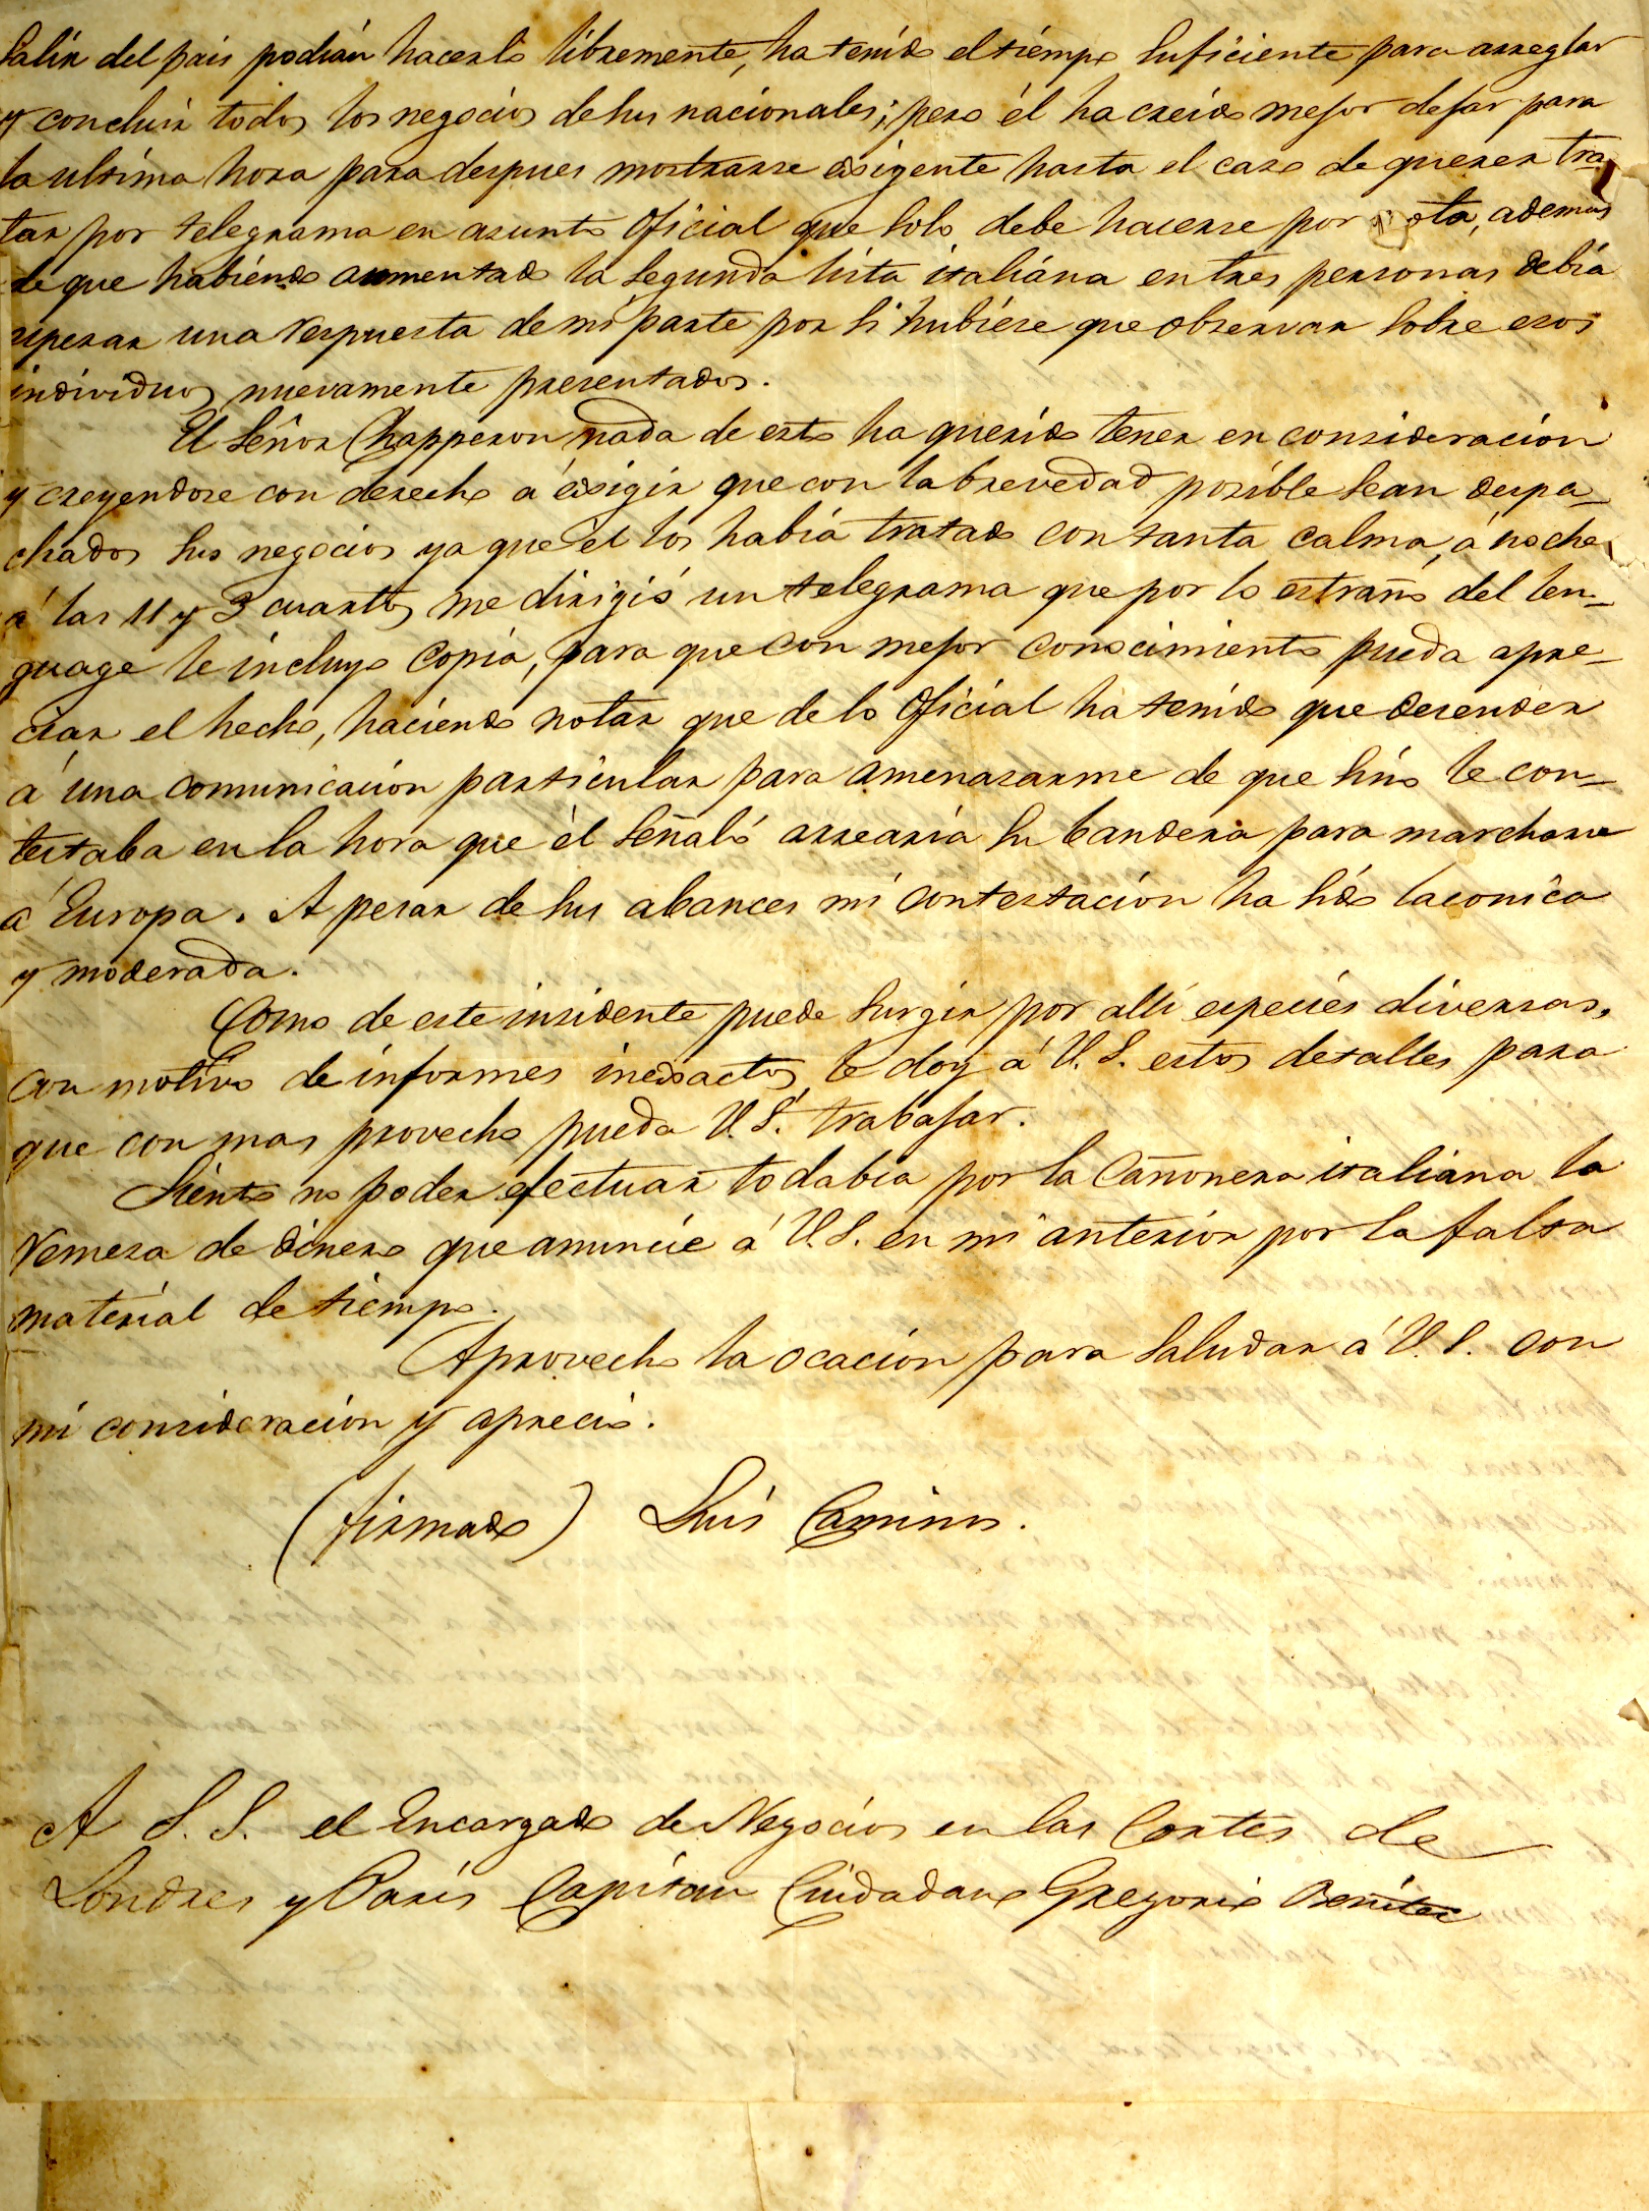 salir del pais podián hacerlo libremente, ha tenido el tiémpo suficiente para arreglar
y concluir todos los negocios de sus nacionales; pero él ha creido mejor dejar para
la ultima hora para despues mostrarse exigente hasta el caso de querer tra-
tar por telegrama en asunto Oficial que solo debe hacerse por nota, ademas
de que habiéndo aumentado la segunda lista italiána en tres personas debia
esperar una respuesta de mi parte por si hubiére que observar sobre esos
individuos nuevamente presentados.
El Señor Chapperon nada de esto ha querido tener en consideración
y creyendose con derecho á exigir que con la brevedad posible sean despa-
chados sus negocios ya que él los había tratado con tanta calma, á noche
á las 11 y 3 cuartos me dirigió un telegrama que por lo estraño del len-
guage le incluyo copia, para que con mejor conocimiento pueda apre-
ciar el hecho, haciendo notar que de lo Oficial ha tenido que decender
á una comunicación particular para amenasarme de que sinó le con-
testaba en la hora que él señaló arrearia su bandera para marcharse
á Europa. A pesar de sus abances mi contestación ha sido laconica
y moderada.
Como de este insidente puede surgir por allí especiés diversas,
con motivo de informes inexactos, le doy á V.S. estos detalles para
que con mas provecho pueda V.S. trabajar.
Siento no poder efectuar todabia por la Cañonera italiana la
remesa de dinero que anuncié á V.S. en mi anterior por la falta
material de tiémpo.
Aprovecho la ocación para saludar á V.S. con
mi consideración y aprecio.
(firmado) Luis Caminos.
A S.S. el Encargado de Negocios en las Cortes de
Londres y París Capitan Ciudadano Gregorio Benites